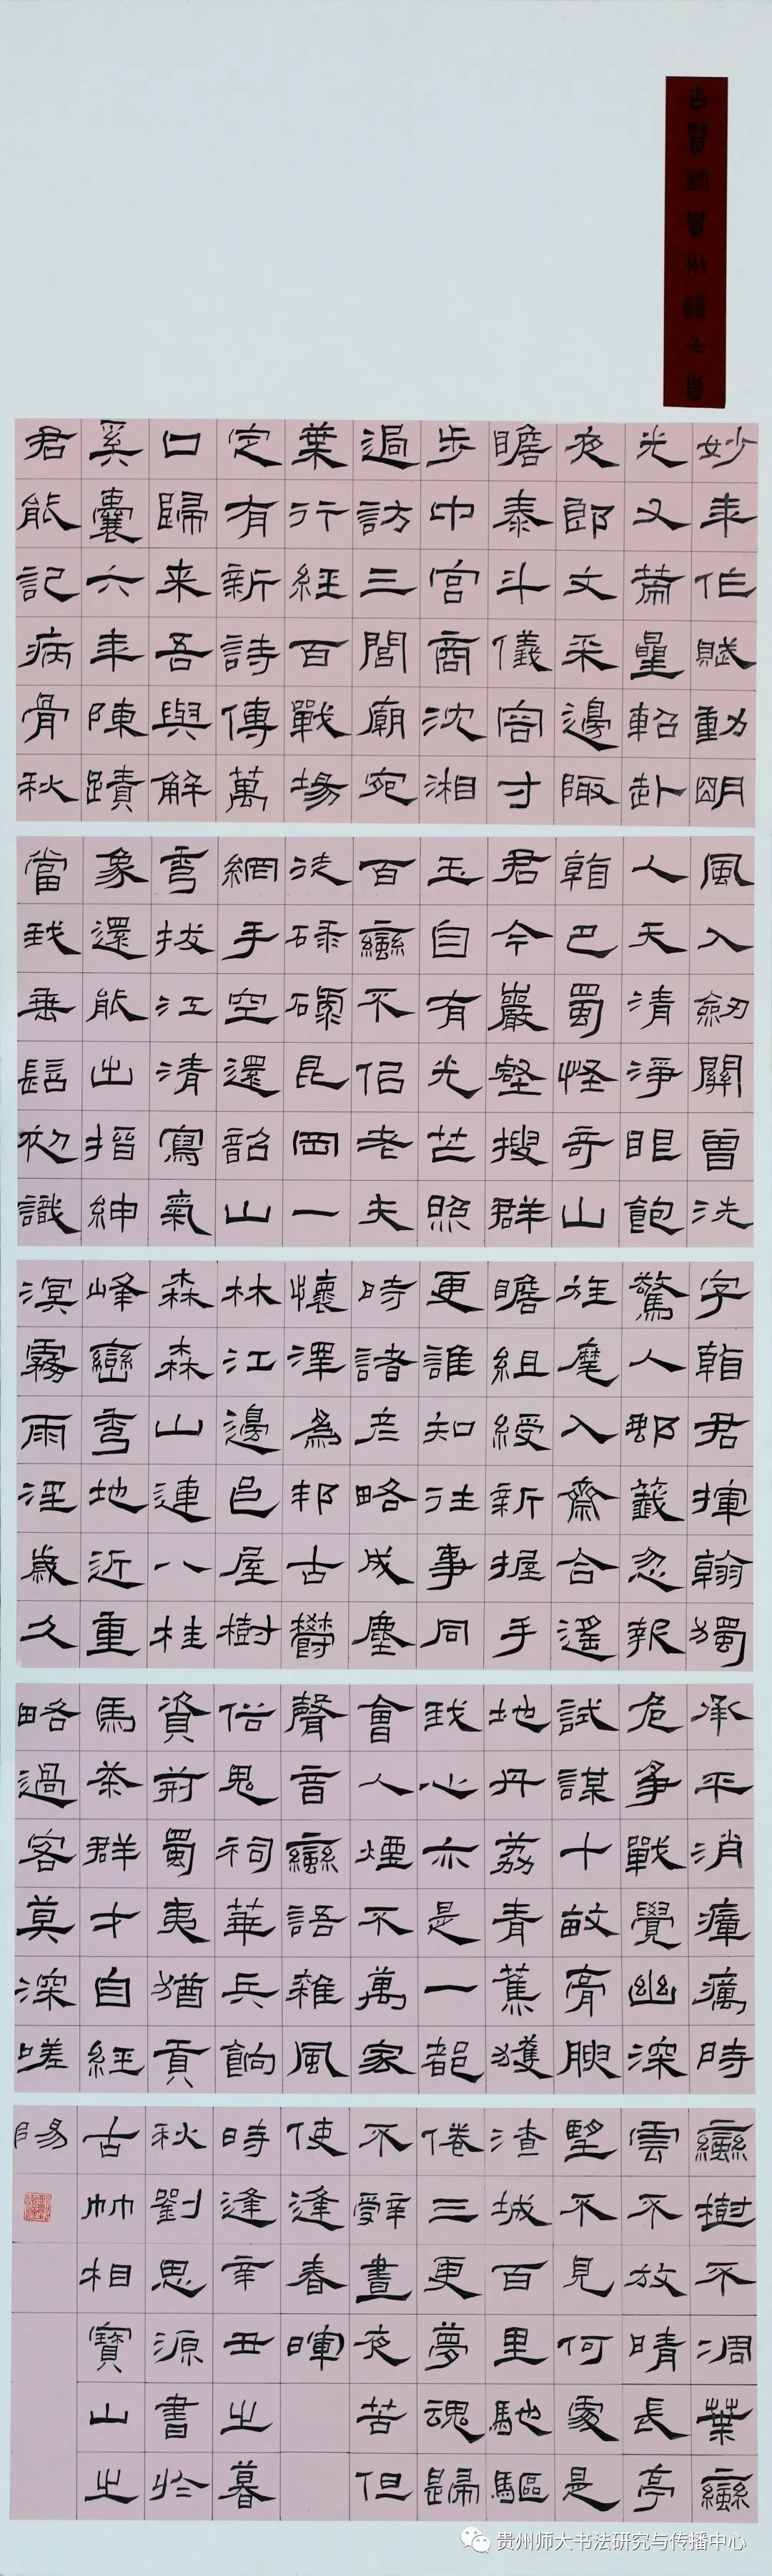 妙年作賦動明
光又星軺赴
夜郎文采邊陬
瞻泰斗儀容寸
步中宮商沈湘
過訪三閭廟宛
葉行經百戰場
定有新詩傳萬
口歸来吾與解
奚囊六年陳蹟
君能記病骨秋
風入劒關曾洗
人天清淨眼飽
看巴蜀怪奇山
君今巖壑搜群
玉自有光芒照
百蠻不佀老夫
徒碌碌昆岡一
網手空還韶山
秀拔江清寫氣
象還能出搢紳
當我垂髫初識
字看君揮翰獨
驚人鄴籤忽報
旌麾入齋合遙
瞻組綬新握手
更誰知往事同
時諸彦略成塵
懷澤為邦古欝
林江邊邑屋樹
森森山連八桂
峰巒秀地近重
溟霧雨淫歲久
承平消瘴癘時
危爭戰覺幽深
試謀十畝膏腴
地丹荔青蕉獲
我心亦是一都
會人煙不萬家
聲音蠻語雜風
俗鬼祠華兵餉
資荊蜀夷猶貢
馬茶群才自經
略過客莫深嗟
蠻樹不凋葉蠻
雲不放晴長亭
望不見何處是
渣城百里馳驅
倦三更夢魂歸
不辭晝夜苦但
使逢春暉
時逢辛丑之暮
秋劉思源書於
古竹相寶山之
陽
贵州师大书法研究与传播中心